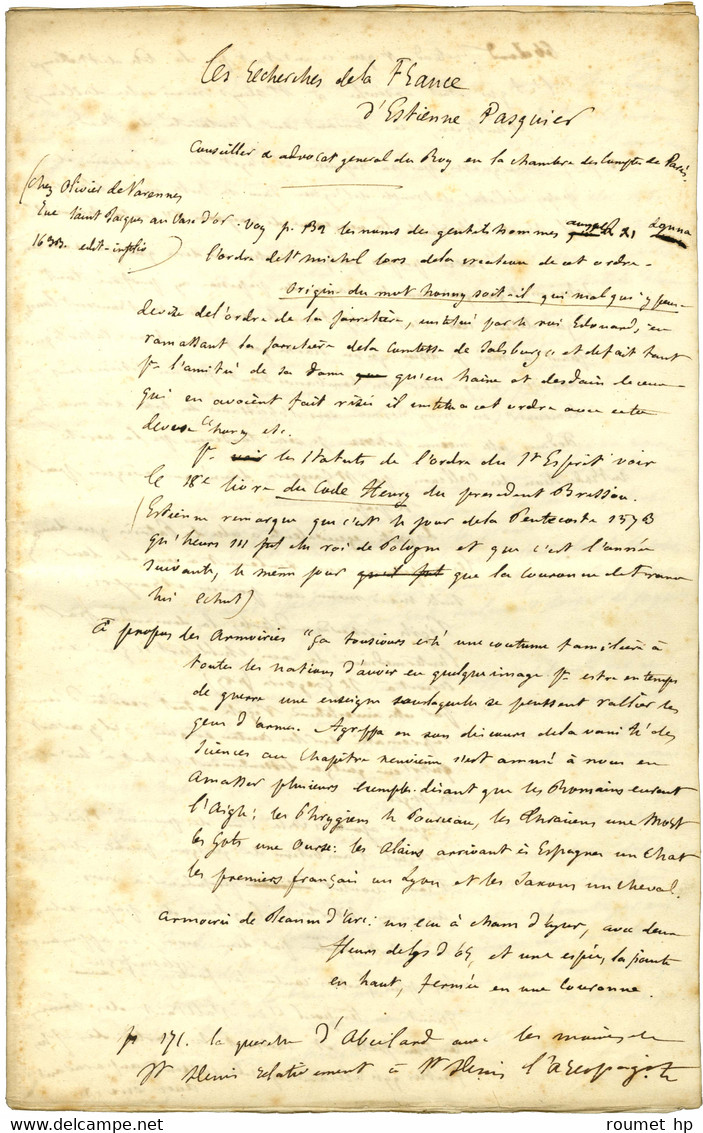 Les recherches de la France
d'Estienne Pasquier
Conseiller & advocat general du Roy en la chambre des comptes de Paris.
(chez Olivier de Varennes
Rue Saint Jacques au Vase d'or. Voy p. 132 les noms des gentilshommes auxquels Louis XI donna
1633. edit. in-folio)
l'ordre de St michel lors de la creation de cet ordre.
origine du mot honny soit-il qui mal qui y pense
devise de l'ordre de la jarretière, institué par le roi Edouard, en
ramassant la jarretière de la Comtesse de Salsburge et de fait tant
pr l'amitié de sa dame qu'en haine et desdain de ceux
qui en avoient fait risée il institua cet ordre avec cette
devise honny etc.
Pr les statuts de l'ordre du St Esprit voir
le 18e livre du Code Henry du president Brisson.
(Estienne remarque que c'est le jour de la Pentecoste 1573
qu'henri III fut élu roi de Pologne et que c'est l'année
suivante, le même jour que la couronne de france
lui échut)
à propos des armoiries "ça tousiours esté une coutume familière à
toutes les nations d'avoir en quelque image pr estre en temps
de guerre une enseigne sous laquelle se peussent rallier les
gens d'armes. Agrippa en son discours de la vanité des
sciences au chapitre neuvième s'est amusé à nous en
amasser plusieurs exemples disant que les Romains eurent
l'Aigle; les Phrygiens le Pourceau, les Thraciens une Mort
les Gots une Ourse: les Alains arrivant ès Espagnes un Chat
les premiers français un Lyon et les Saxons un cheval.
armoirie de Jeanne d'Arc: un écu à champ d'azur, avec deux
fleurs de lys d'or, et une espée, la pointe
en haut, fermée en une couronne.
p 171. la querelle d'Abeilard avec les moines de
St Denis relativement à St Denis l'areopagite
roumet hp